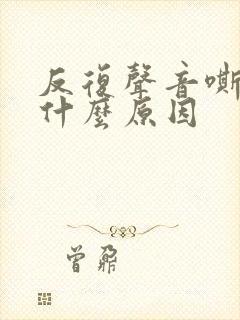 反復聲音嘶
什麼原因
曾鼐